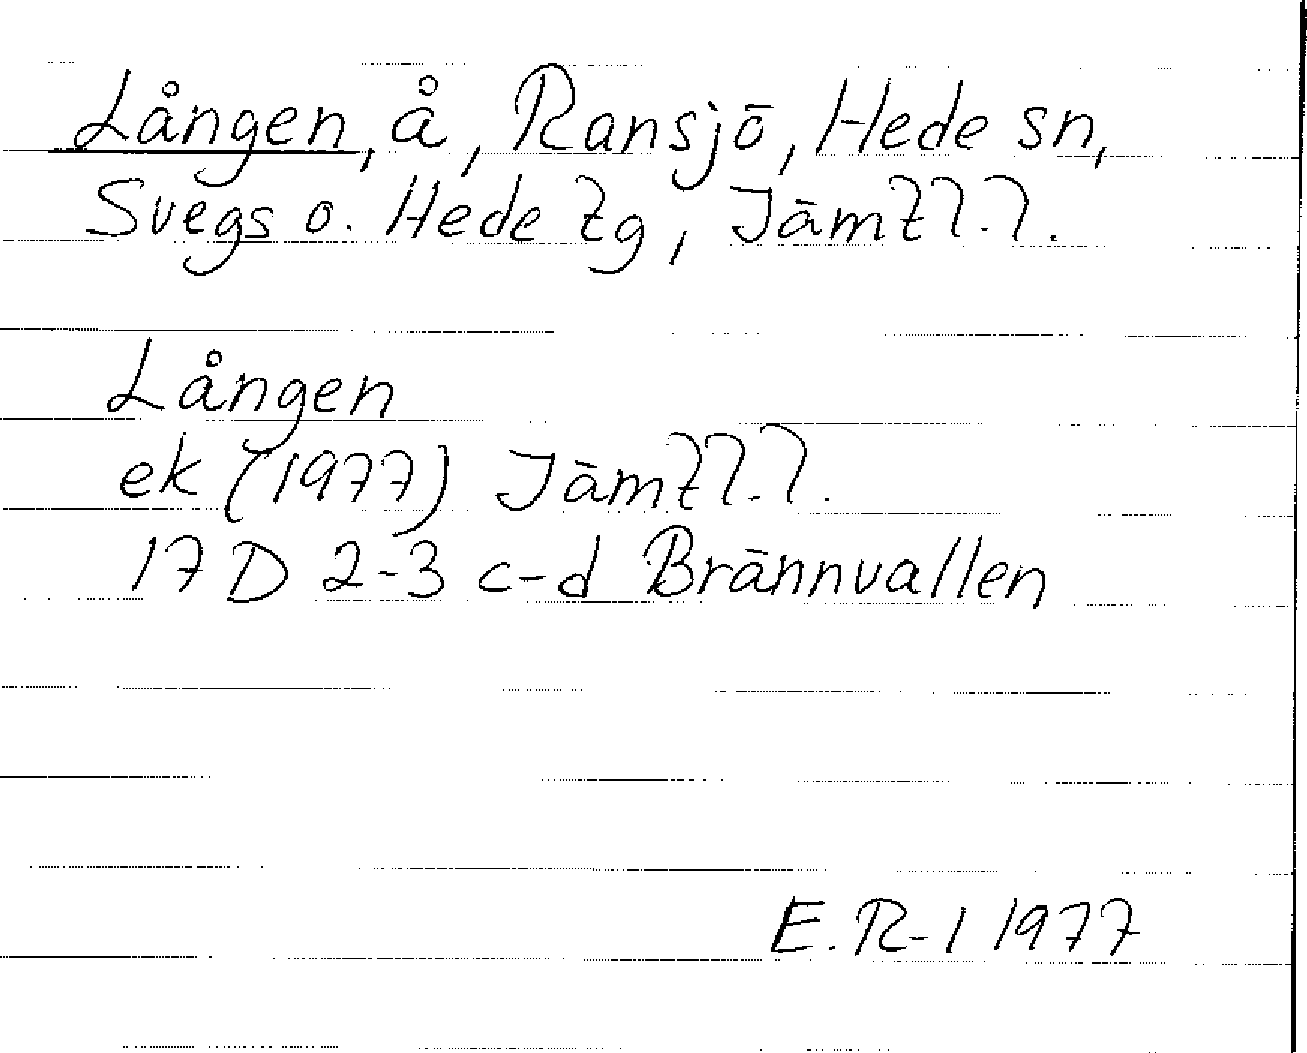 Lången, å, Ransjö, Hede sn,
Svegs o. Hede tg, Jämtl.l.
Lången
ek (1977) Jämtl.l.
17 D 2-3 c-d Brännvallen
E.R-l 1977